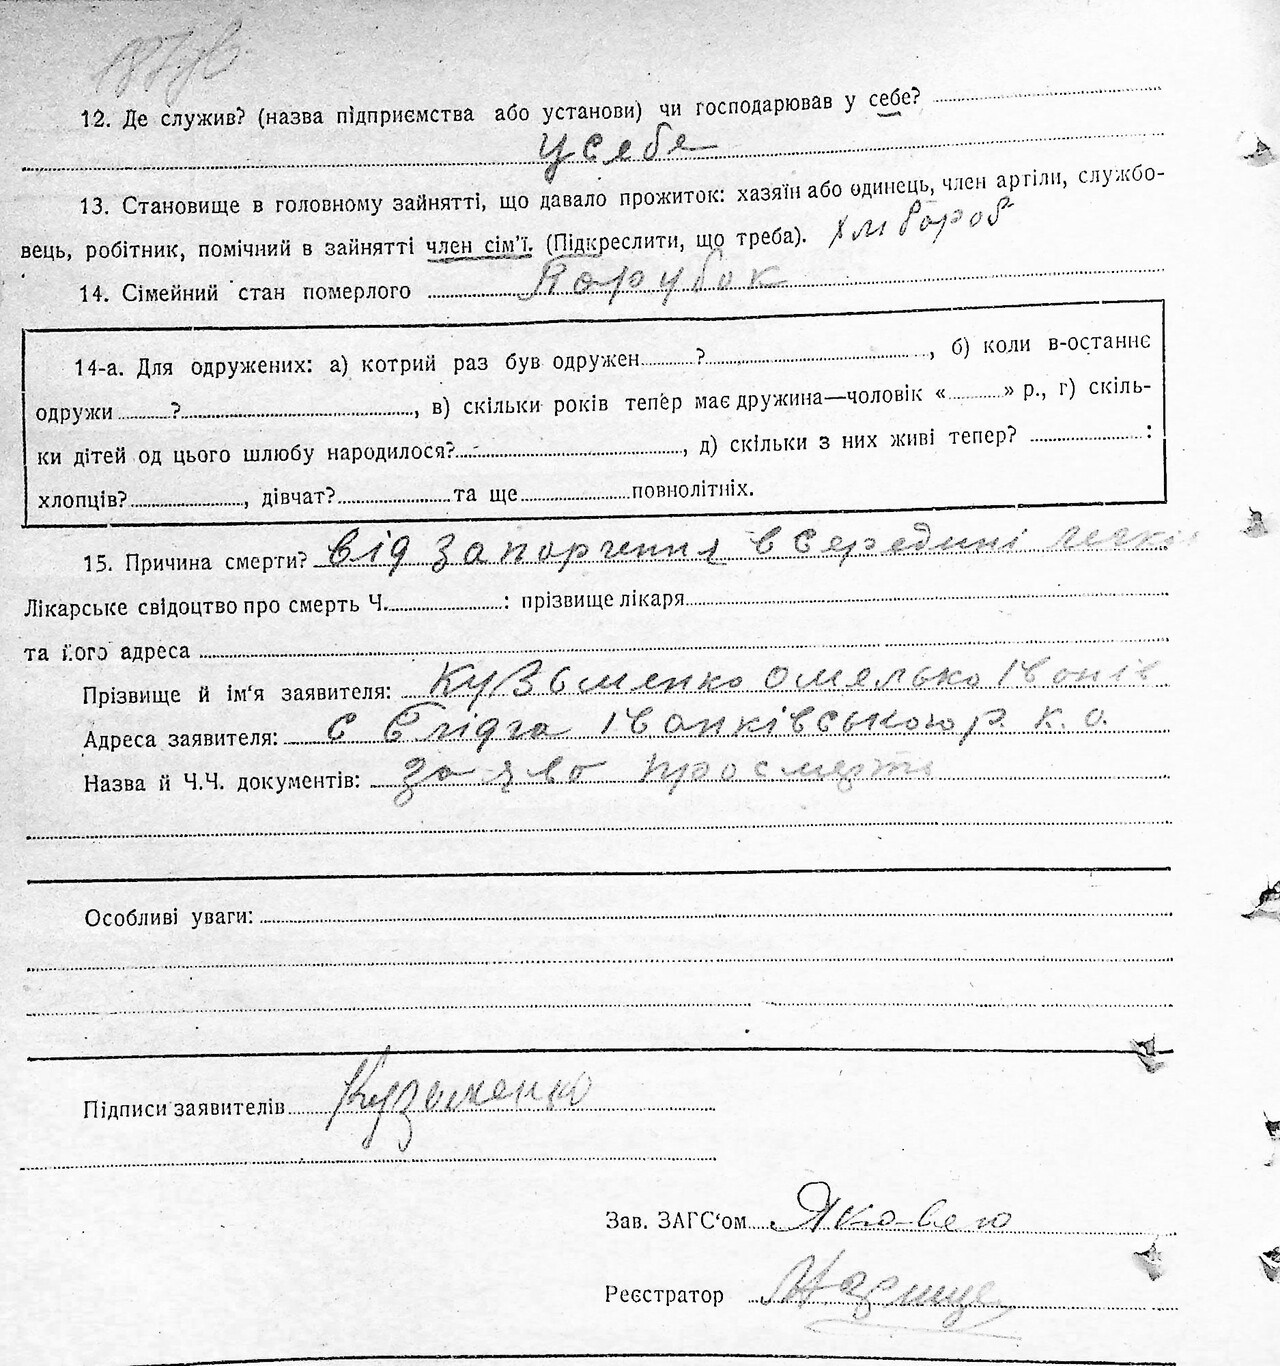 12. Де служив? (назва підприємства або установи) чи господарював у себе?
у себе
13. Становище в головному зайнятті, що давало прожиток: хазяїн або одинець, член артіли, службо-
вець, робітник, помічний в зайнятті член сім'ї. (Підкреслити, що треба). хлібороб
14. Сімейний стан померлого Парубок
14-а. Для одружених: а) котрий раз був одружен ? , б) коли в-останнє
одружи ? , в) скільки років тепер має дружина—чоловік « » р., г) скіль-
ки дітей од цього шлюбу народилося? , д) скільки з них живі тепер? :
хлопців? , дівчат? та ще повнолітніх.
15. Причина смерти? від запорчення в середині легкі
Лікарське свідоцтво про смерть Ч. : прізвище лікаря
та його адреса
Прізвище й ім'я заявителя: Кузьменко Омелько Іванів
Адреса заявителя: с Іванківською р. К. О.
Назва й Ч.Ч. документів: заява про смерть
Особливі уваги:
Підписи заявителів Кузьменко
Зав. ЗАГС'ом
Реєстратор